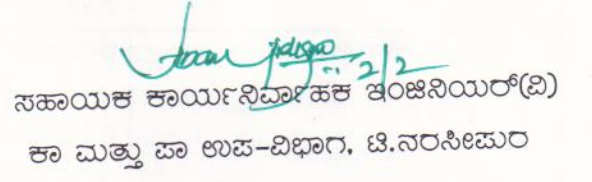 2/2
ಸಹಾಯಕ ಕಾರ್ಯನಿರ್ವಾಹಕ ಇಂಜಿನಿಯರ್(ವಿ)
ಕಾ ಮತ್ತು ಪಾ ಉಪ-ವಿಭಾಗ, ಟಿ.ನರಸೀಪುರ